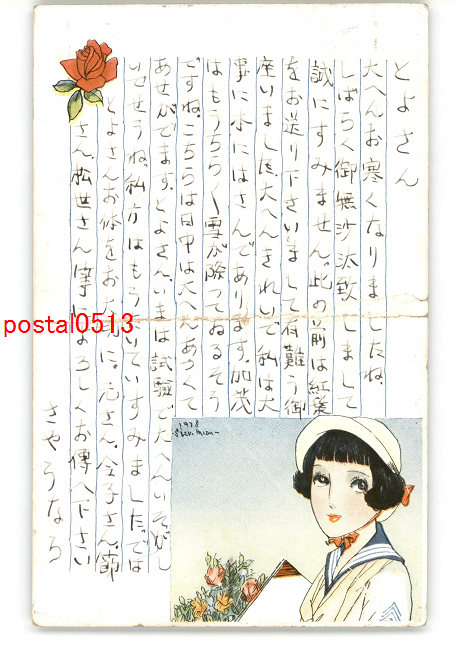 とよさん
大へんお寒くなりましたね、
しばらく御無沙汰致しまして
誠にすみません。此の前は紅葉
をお送り下さいまして有難う御
座いました。大へんきれいで私は大
事に本にはさんであります。加茂
はもうちらちら雪が降つてゐるそう
ですね。こちらは日中は大へんあつくて
あせがでます。とよさん、いまは試験で大へんいそがし
いでせうね。私方はもう すみました。では
とよさんお体をお大事に。 さん。 子さん。節
さん、松世さん よろしくお傳へ下さい
さやうなら
1938
postal0513